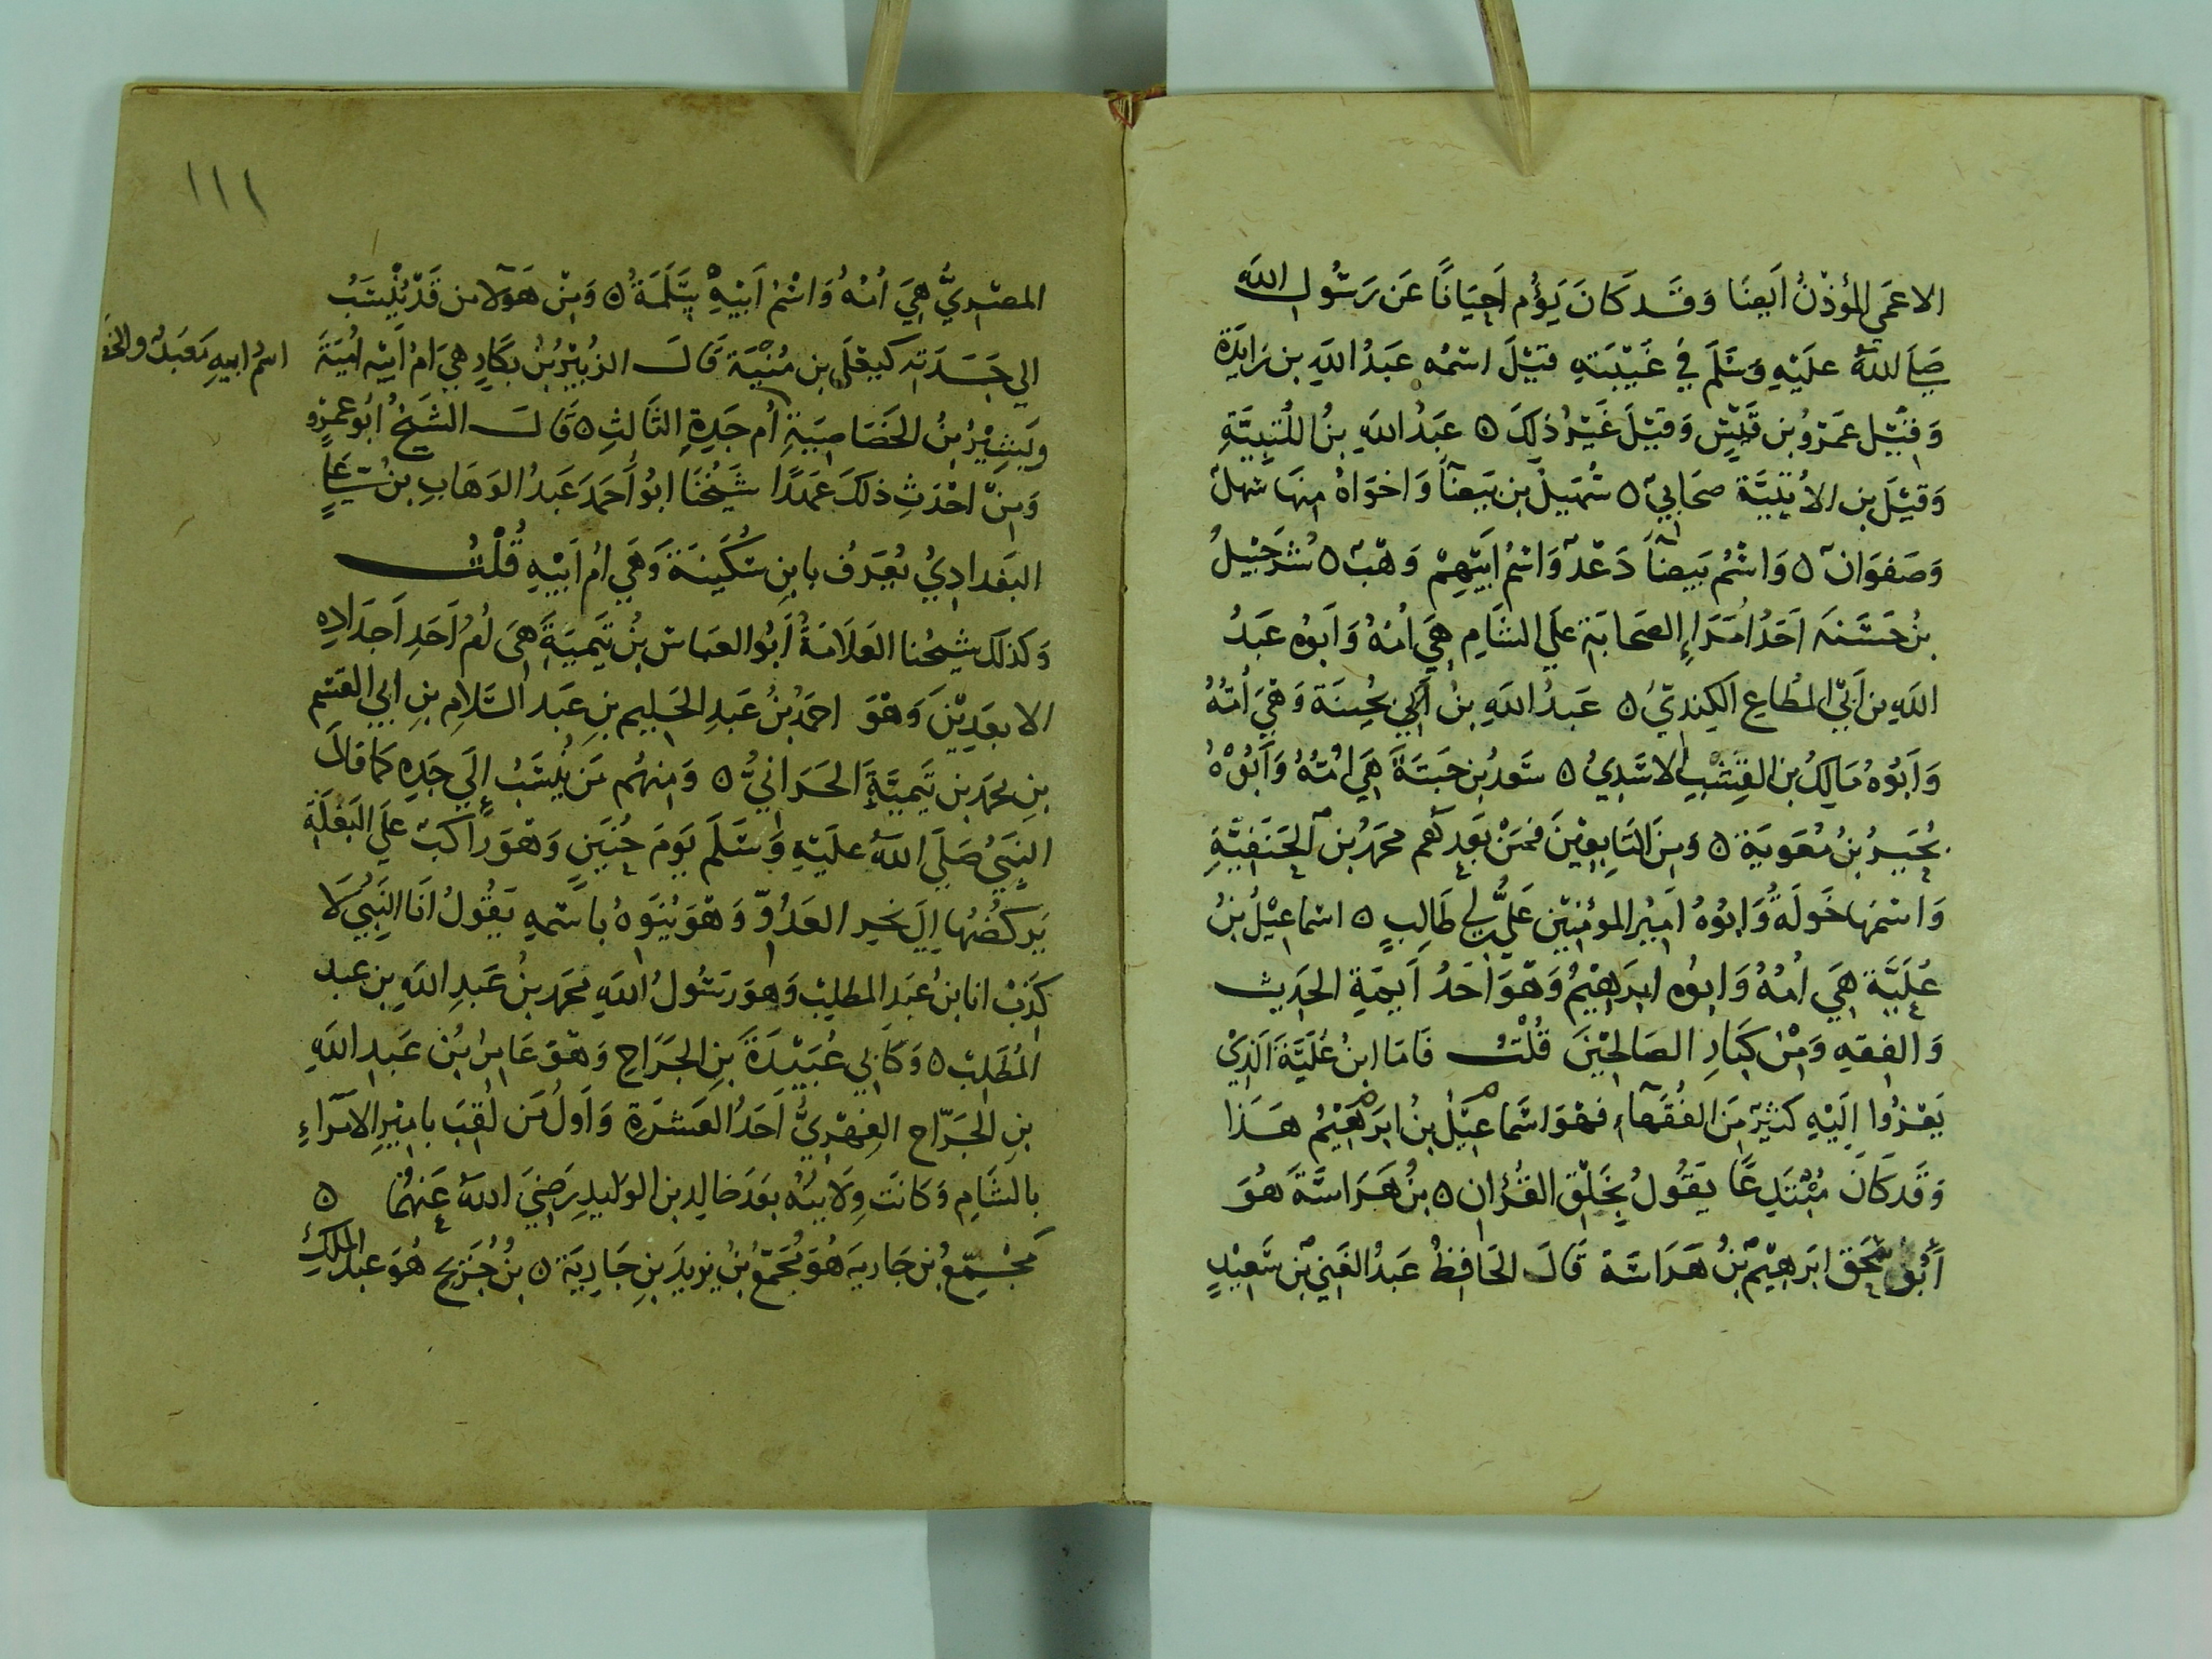 الاعمَي المؤذنُ اَيضًا وَقَد كَانَ يَؤُم اَحيَانًا عَن رَسُول الله
صَلَي اللهُ علَيْهِ وَسَلَّمَ فِي غَيْبَتهِ قيْلَ اسْمُه عَبدُ اللهِ بن زَايدَة
وَقِيْل عَمرُو بن قَيْسٍ وَقيْلَ غَيْرُ ذلِكَ ٥ عَبدُ اللهِ بنُ اللُتْبِيَّةِ
وَقيْلَ بن الاُتبِيَّة صحَابِي ٥ سُهَيلُ بن بَيضآَ وَاخوَاهُ مِنهَا سَهلٌ
وَصَفوَانٌ ٥ وَاسْمُ بَيضآَ دَعْدٌ وَاسْمُ اَبيْهِمْ وَهْبٌ ٥ شُرَحْبيْلُ
بنُ حَسَنَه اَحَدُ اُمَرَاءِ الصَحَابَة علَي الشَام هِيَ اُمُهُ وَاَبوْه عَبدُ
اللهِ بن اَبي المُطَاع الكِندِيُ ٥ عَبدُ اللهِ بنُ اَبي بُحيْنَة وَهيَ اُمُهُ
وَاَبُوْهُ مَالِكُ بن القِشْبِ الاسَدِيُ ٥ سَعدُ بن حَبتَةَ هَيَ اُمُهُ وَاَبُوْهُ
بُحَيرُ بنُ مُعَوِيَة ٥ وَمِنَ التَابِعِيْنَ فمَنْ بَعدَهُم محَمدُ بن الحنَفيَّةِ
وَاسْمهَا خَولَةُ وَابُوْهُ اَميْرُ الموْمِنيْن علَيُّ بن ابي طَالِبٍ ٥ اسْماعيْلُ بنُ
عُلَيَّة هِيَ اُمُهُ وَابوُه ابرَاهيْمُ وَهْوَ اَحَدُ اَيمَةِ الحَدِيث
وَالفِقهِ وَمِنْ كبَارِ الصَالِحيْنَ قُلْتُ فَامَا ابنُ عُلَيَّةَ الَذِيْ
يَعْزُوا اِلَيْهِ كثيْرٌ مِنَ الفُقَهآءِ فهْوَ اسْمَاعِيْلُ بنُ ابرَاهيْمُ هَذَا
وَقَد كَانَ مُبْتَدِعًا يَقُولُ بِخَلْق القُرْان ٥ بنُ هَرَاسَةَ هُوَ
اَبُو اسْحَق ابرَهيْمُ بنُ هَرَاسَة قَالَ الحَافِظُ عَبدُ الغَني بن سَعيْدٍ
١١١
المصْرِيُّ هِيَ اُمُهُ وَاسْمُ اَبيْهِ سَلَمَةُ ٥ وَمِنْ هَوُلآ من قَدْ يُنْسَبُ
الي جَدَتِه كيَعلَي بن مُنْيَة قَالَ الزُبيْرُ بنُ بكَارٍ هِيَ امُ اَبيْه اُمَيَة
اسْمُ ابيهِ مَعبَدٌ والخَ
وَبَشِيْرُ بنُ الخَصَاصِيَةِ اُم جَدِهِ الثَالِثِ ٥ قَالَ الشَيخُ اَبُو عَمرٍو
وَمِنْ احْدَثِ ذلكَ عَهدًا شَيْخُنَا ابُو اَحمَدَ عَبدُ الوَهَابِ بنُ عَلي
البَغدَادِيُ يُعرَفُ بابنِ سُكَينَةَ وَهيَ اُم اَبيْهِ قُلْتُ
وَكذلكَ شيْخُنا العَلاَمَةُ اَبُو العبَاس بنُ تَيميَةَ هيَ اُمُ اَحَدِ اَجدَادِه
الابعَدِيْنَ وَهوَ احمَدُ بنُ عَبدِ الحَلِيم بنِ عَبدِ السَّلامِ بنِ ابي القسم
بنِ محمَدِ بن تَيميَّةَ الحَرَانيُّ ٥ وَمِنهُم مَن يُنْسَبُ اِلَي جَدِهِ كمَا قَالَ
النبيُ صَلَي اللهُ علَيْهِ وَسَلَّمَ يَومَ حُنَيْنٍ وَهْوَ رَاكبٌ علَي البَغلَةِ
يَركضُهَا اِلَي نحرِ العَدُوِّ وَهْوَ يُنَوِهُ باسْمهِ يَقُولُ اَنَا النَبيُ لَا
كَذِبْ انا بنُ عَبدِ المطلِبْ وَهوَ رَسُولُ اللهِ محَمد بنُ عَبدِ اللهِ بن عبد
المُطَلِبْ ٥ وَكَابي عُبَيْدَةَ بنِ الجَرَاحِ وَهْوَ عَامِرُ بنُ عَبدِ اللهِ
بنِ الجَرّاح الفِهْرِيُّ اَحَدُ العَشرَةِ وَاَولُ مَن لُقِبَ بامِيْرِ الاُمَرَاءِ
بالشَامِ وَكانَت وِلَايتُه بعَدَ خالِد بن الوليدِ رَضيَ اللهُ عَنهُمَا ٥
مُجَمِّعُ بن جَارية هُوَ مُجَمّعُ بنُ يَزيدَ بنِ جَارِيَة ٥ بنُ جُرَيجٍ هُوَ عبد الملكِ